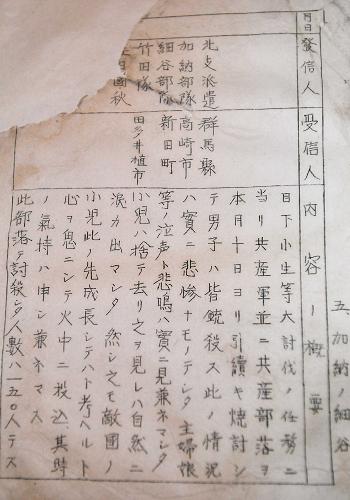 五、加納ノ細谷
月日
發信人
受信人
内容ノ概要
北支派遣
加納部隊
細谷部隊
竹田隊
國秋
群馬縣
高崎市
新田町
田多井植市
目下小生等大討伐ノ任務ニ
当リ共産軍並ニ共産部落ヲ
本月十日ヨリ引續キ焼討シ
テ男子ハ皆銃役ス此ノ情況
ハ實ニ悲惨ナモノテシタ主婦娘
等ノ泣声ト悲鳴ハ實ニ見兼ネマシタ
小児ハ捨テ去リ之ヲ見レハ自然ニ
涙カ出マシタ然シ之モ敵國ノ
小児此ノ先成長シテハト考ヘルト
心ヲ息ニシテ火中ニ投込ミ其時
ノ氣持ハ申シ兼ネマス
此部落テ討殺シタ人数ハ一五〇人テス